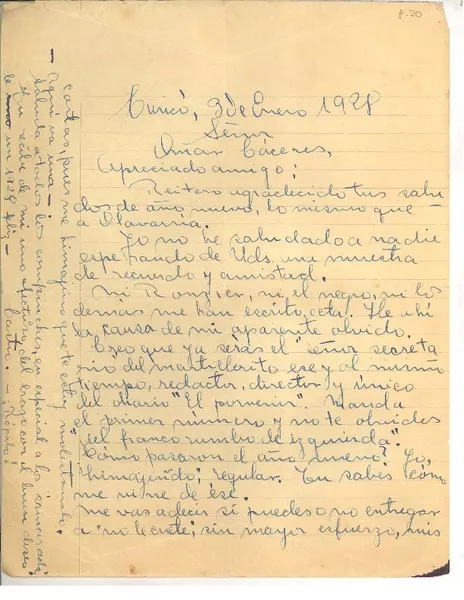 P. 20
Curicó, 3 de Enero 1928
Señor
Omar Cáceres,
Apreciado amigo:
Reitero agradecido tus salu
dos de año nuevo, lo mismo que
a Olavarría.
Yo no he saludado a nadie
esperando de Uds. una muestra
de recuerdo y amistad.
Ni Rongier, ni el negro, ni los
demás me han escrito, ceta. He ahí
la causa de mi aparente olvido.
Creo que ya serás el "señor secreta
rio" del martillerito ese y al mismo
tiempo, redactor, director y único
del diario "El porvenir". Manda
el primer número y no te olvides
"del franco rumbo de izquierda".
Cómo pasaron el año nuevo? Yo,
"himajando", regular. Tu sabes cómo
me vine de ése.
Me vas a decir si puedes o no entregar
a "no lecrete", sin mayor esfuerzo, mis
cartas, pues me himagino que te estoy molestando.
Aquí va una—
Saluda a todos los compinches, en especial a los
Tu recibe de mi uno afectuoso, del brazo con el buen deseo
de un 1928 feliz—
Castro.—